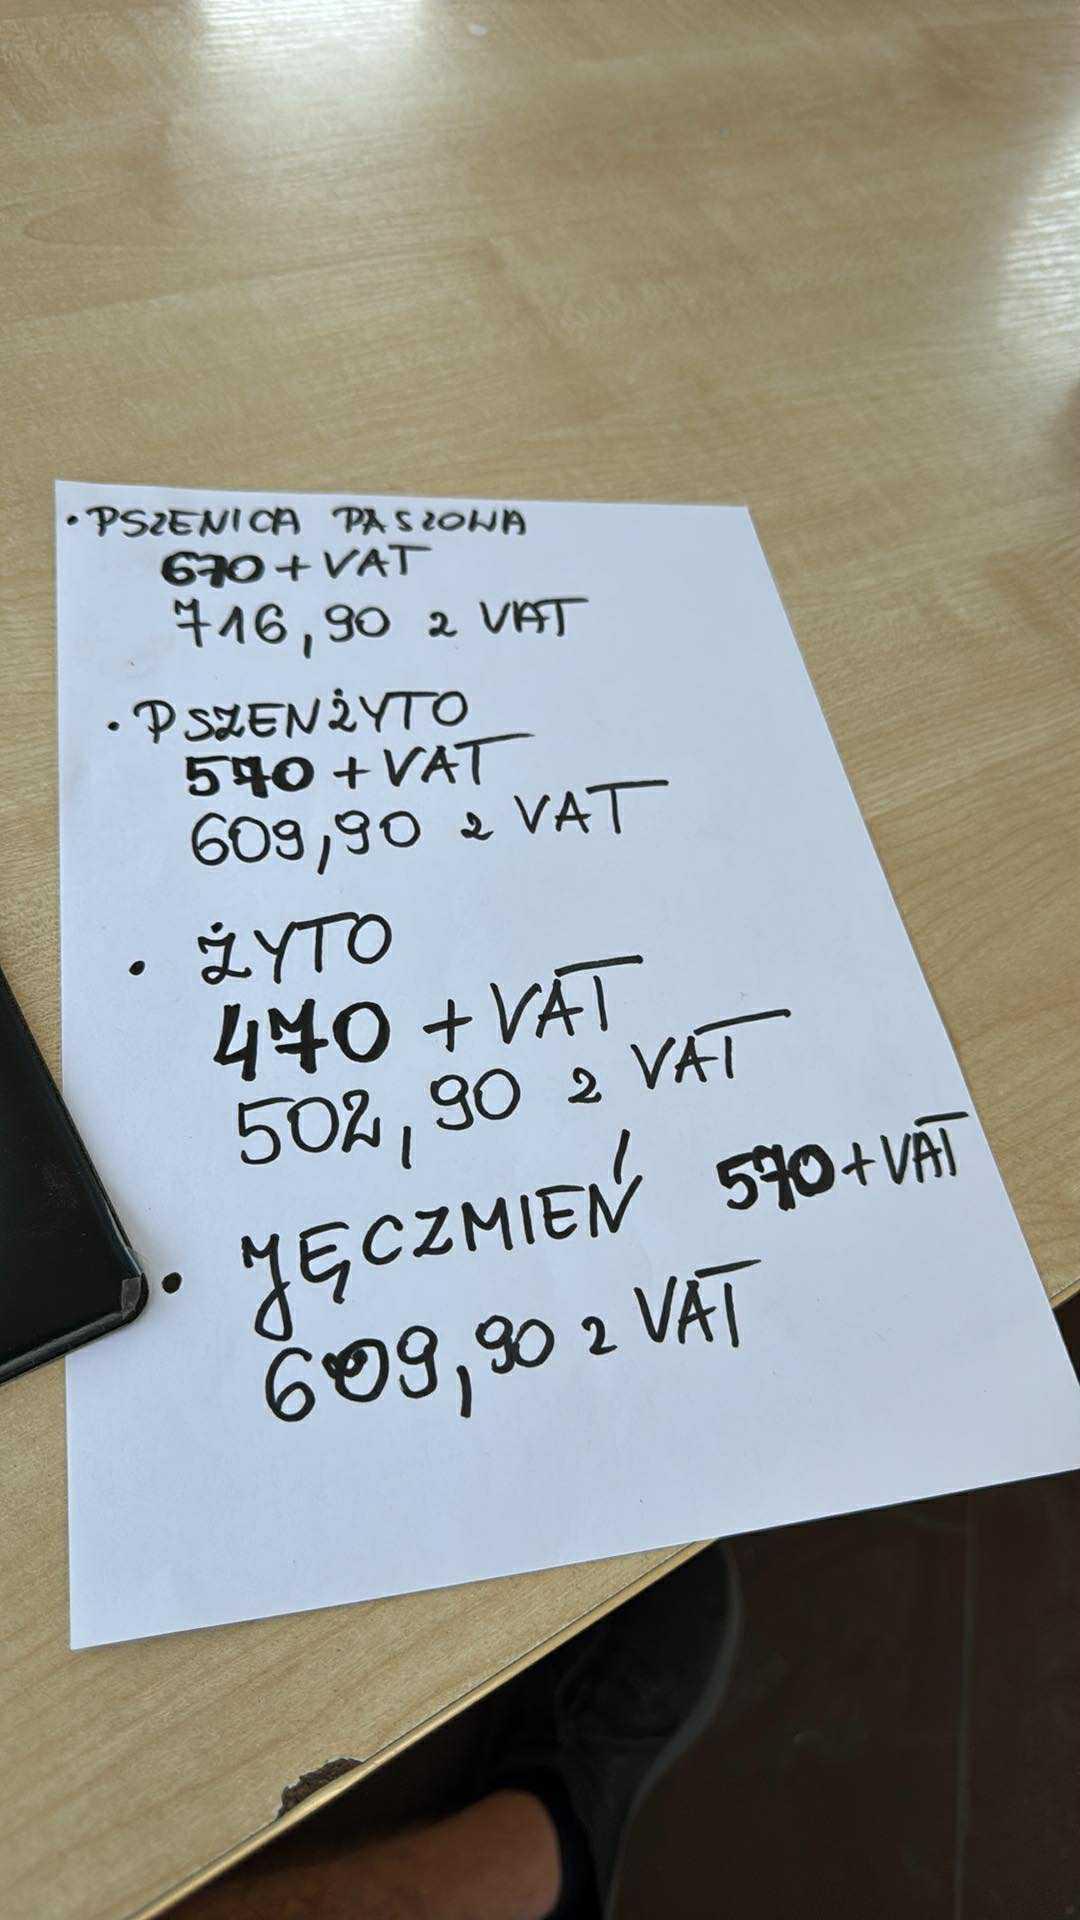 • PSZENICA PASZOWA
670 + VAT
716,90 z VAT
• PSZENŻYTO
570 + VAT
609,90 z VAT
• ŻYTO
470 + VAT
502,90 z VAT
• JĘCZMIEŃ 570 + VAT
609,90 z VAT